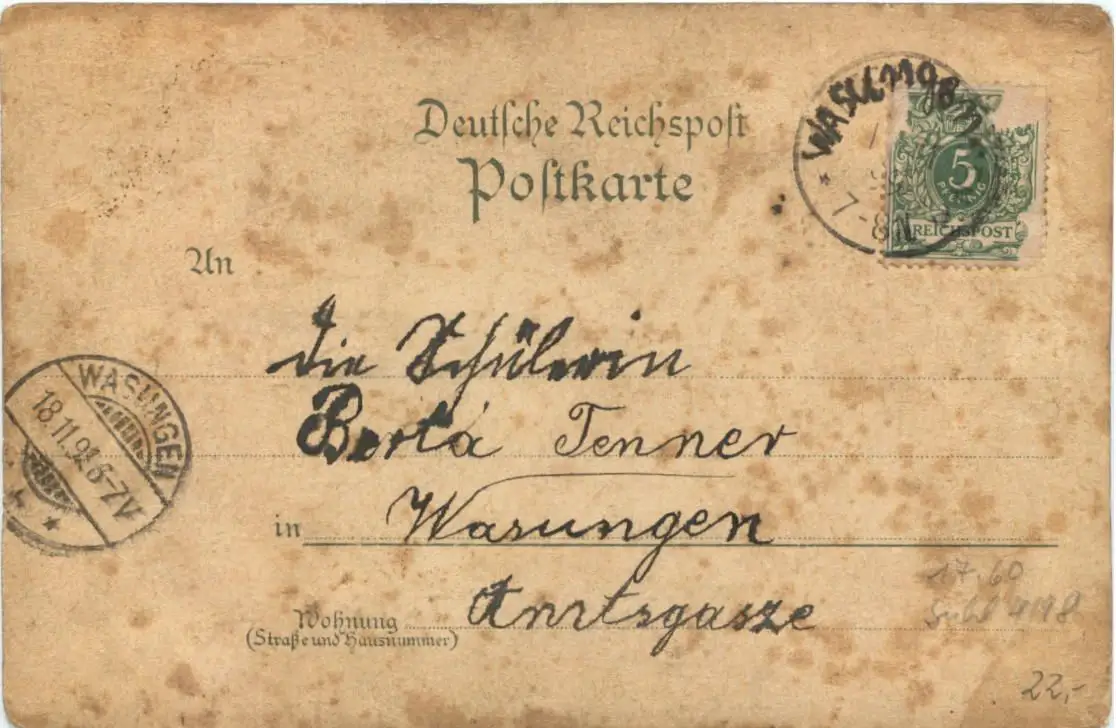 Deutsche Reichspost
Postkarte
WASUNGEN
7-8N
5
PFENNIG
REICHSPOST
An
die Schülerin
Berta Tenner
in Wasungen
Wohnung
(Straße und Hausnummer)
Amtsgasse
WASUNGEN
18.11.98.6-7V
17.60
22,-